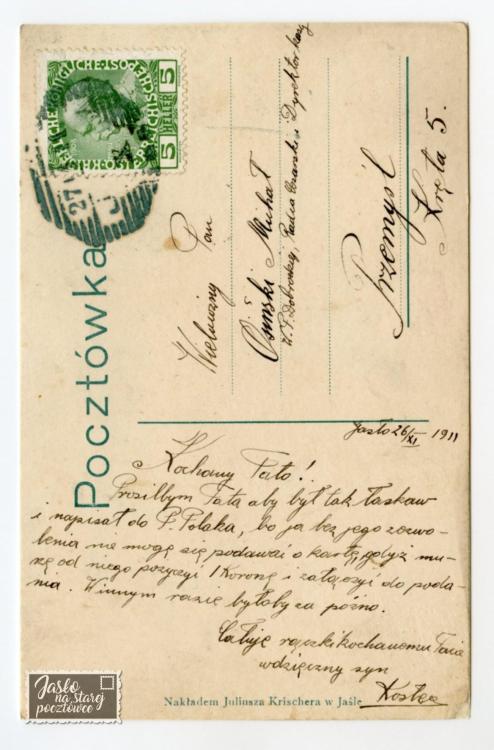 Pocztówka
5 HELLER 5
27
Wielmożny Pan
Osiński Michał
Radca Cesarski i Dyrektor kasy
Przemyśl
Kręta 5.
Jasło 26/XI 1911
Kochany Tato!
Prosiłbym Tata aby był tak łaskaw
i napisał do P. Polaka, bo ja bez jego zezwo-
lenia nie mogę się podawać o kartę, gdyż mu-
szę od niego pożyczyć 1 Koronę i załączyć do poda-
nia. W innym razie byłoby za późno.
Całuję rączki kochanemu Tacie
wdzięczny syn
Nakładem Juliusza Krischera w Jaśle
Jasło
na starej
pocztówce